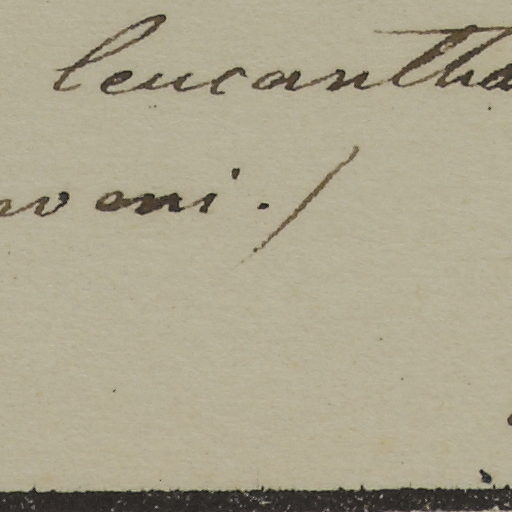 leucantha
voni. /